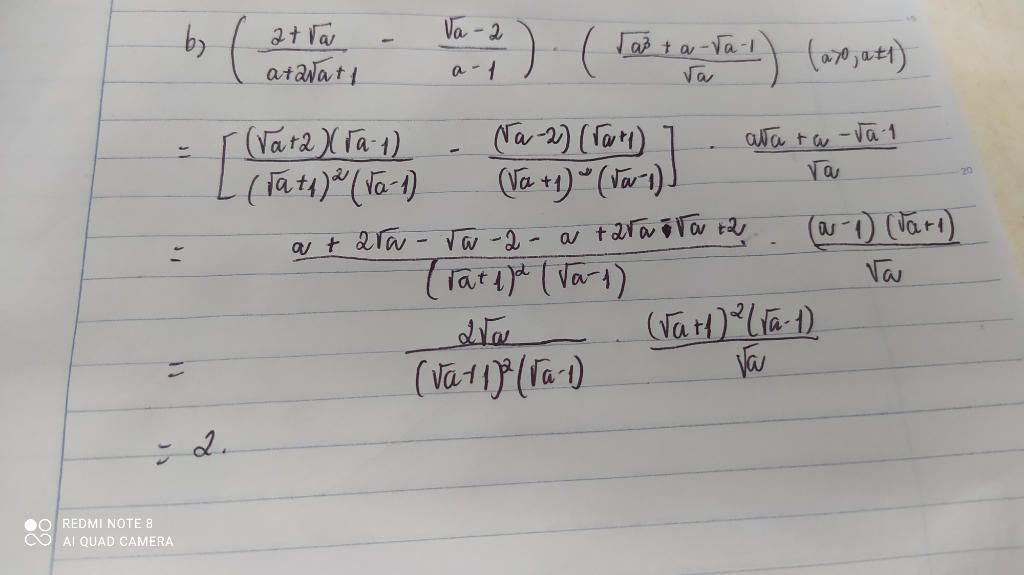 b) ( (2+√a)/(a+2√a+1) - (√a-2)/(a-1) ) · ( (√a³ + a - √a - 1)/√a ) (a>0, a≠1)
= [ (√a+2)(√a-1)/((√a+1)²(√a-1)) - (√a-2)(√a+1)/((√a+1)²(√a-1)) ] · (a√a + a - √a-1)/√a
= (a + 2√a - √a - 2 - a + 2√a - √a + 2)/((√a+1)²(√a-1)) · (a-1)(√a+1)/√a
= 2√a/((√a+1)²(√a-1)) · (√a+1)²(√a-1)/√a
= 2.
REDMI NOTE 8
AI QUAD CAMERA
15
20